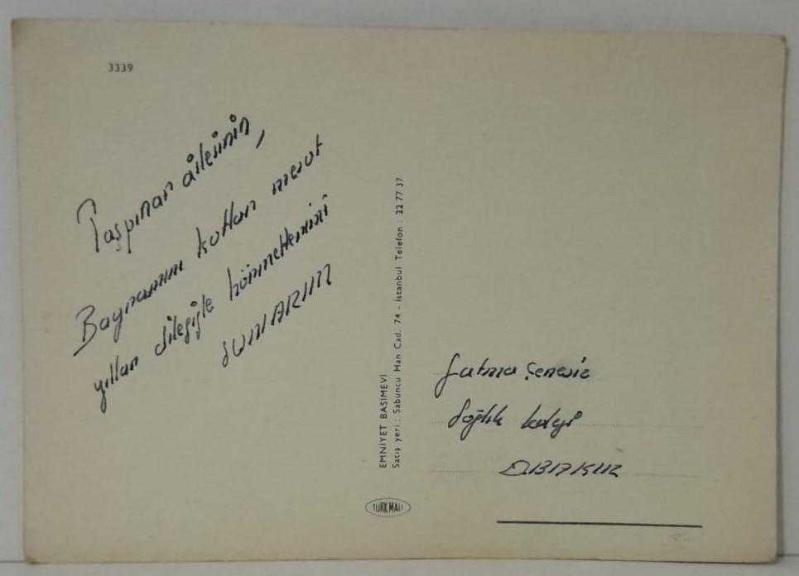 3339
Taşpınar ailesinin,
Bayramını kutlar mesut
yıllar dileğiyle hürmetlerimi
SUNARIM
EMNİYET BASIMEVİ
Satış yeri: Sabuncu Han Cad. 74 - İstanbul Telefon : 22 77 37
TÜRK MALI
Fatma
Sağlık koleji